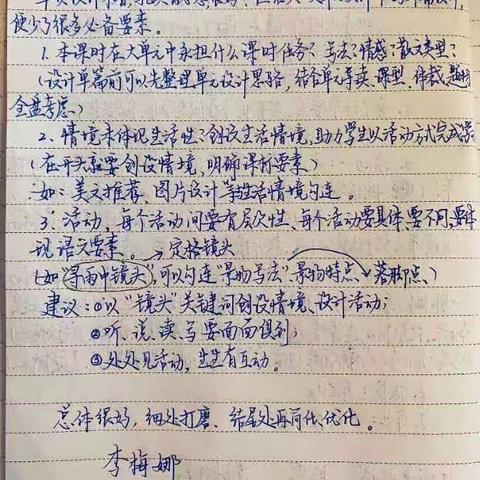 使少了很多必备要素。
1. 本课时在大单元中承担什么课时任务？写法？情感？散文类型？
(设计单篇前可以先整理单元设计思路，结合单元导读、课型、体裁、
全盘考虑)
2. 情境未体现生活性？创设生活情境，助力学生以活动方式完成
(在开头就要创设情境，明确课标要素)
如：美文推荐、图片设计等生活情境勾连。
3. 活动，每个活动间要有层次性、每个活动要具体，要不同，要体
现语文要素。 → 定格镜头
(如"寻雨中镜头"，可以勾连"景物写法"、景物特点 → 落脚点、)
建议：①以"镜头"关键词创设情境、设计活动；
②听、说、读、写要面面俱到；
③处处见活动，生生有互动。
总体很好，细处打磨、结尾处再简化、优化。
李梅娜